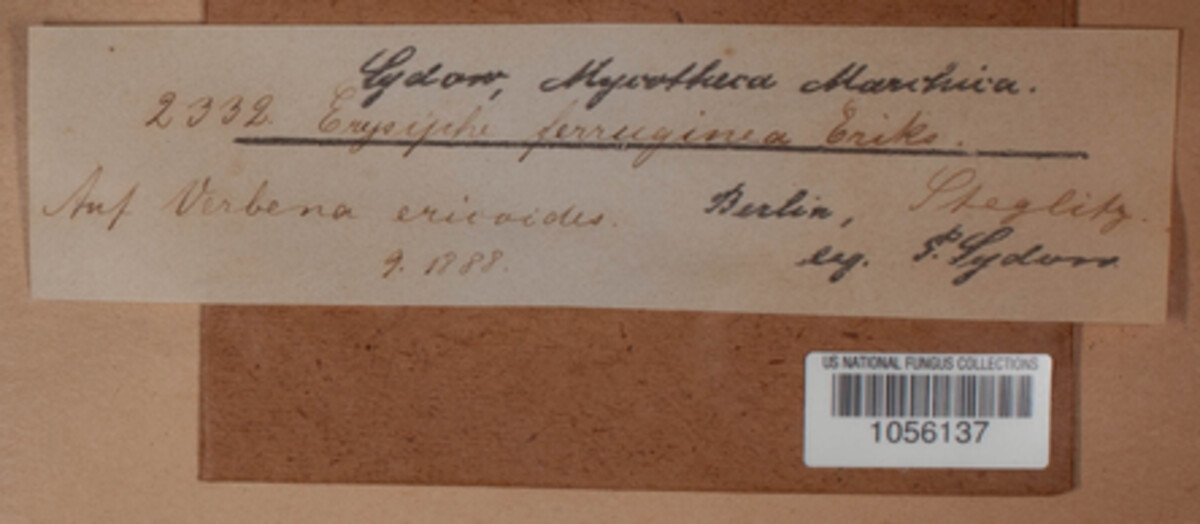 Sydow, Mycotheca Marchica.
2332. Erysiphe ferruginea Eriks.
Auf Verbena ericoides. Berlin, Steglitz.
9. 1888. leg. P. Sydow
US NATIONAL FUNGUS COLLECTIONS
1056137